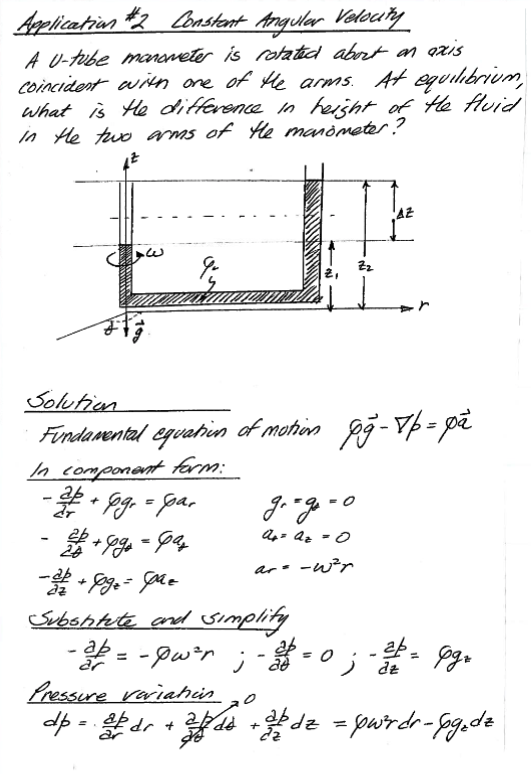 Application #2 Constant Angular Velocity
A U-tube manometer is rotated about an axis
coincident with one of the arms. At equilibrium,
what is the difference in height of the fluid
in the two arms of the manometer?
z
Δz
ω
ρ
z₁
z₂
r
θ g⃗
Solution
Fundamental equation of motion ρg⃗ - ∇p = ρa⃗
In component form:
-∂p/∂r + ρgᵣ = ρaᵣ gᵣ = g_θ = 0
-∂p/∂θ + ρg_θ = ρa_θ a_θ = a_z = 0
-∂p/∂z + ρg_z = ρa_z aᵣ = -ω²r
Substitute and simplify
-∂p/∂r = -ρω²r ; -∂p/∂θ = 0 ; -∂p/∂z = ρg_z
Pressure variation 0
dp = ∂p/∂r dr + ∂p/∂θ dθ + ∂p/∂z dz = ρω²r dr - ρg_z dz